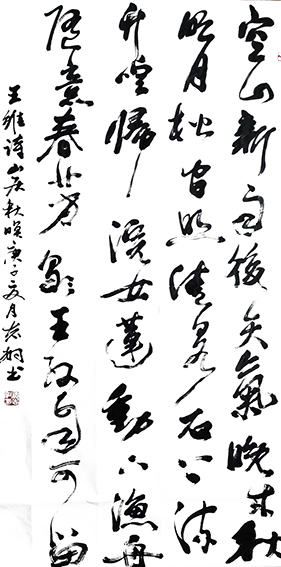 空山新雨後天氣晚来秋
明月松间照清泉石上流
竹喧歸浣女蓮動下漁舟
随意春芳歇王孙自可留
王維诗山居秋暝庚子夏月书